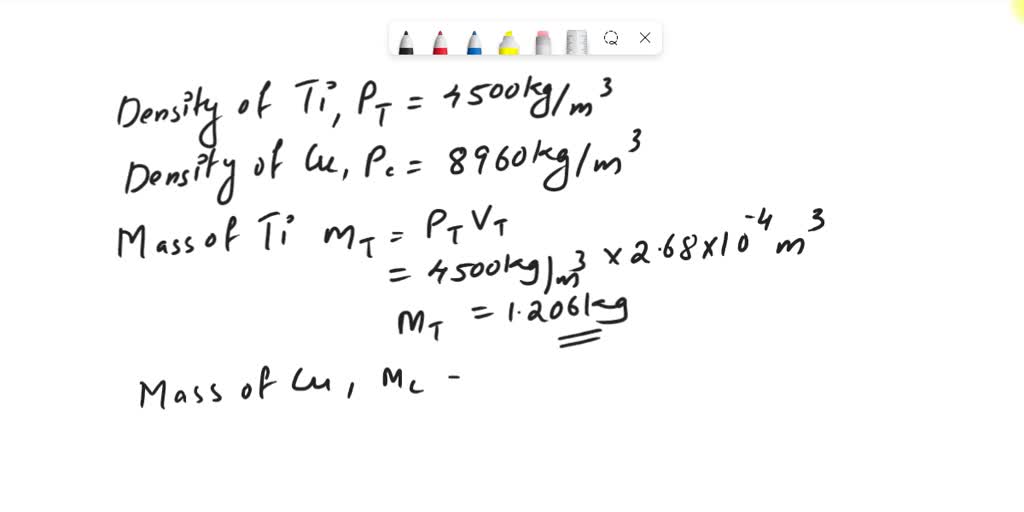 Density of Ti, ρ_T = 4500kg/m³
Density of Cu, ρ_c = 8960kg/m³
Mass of Ti m_T = ρ_T V_T
= 4500kg/m³ × 2.68×10⁻⁴ m³
m_T = 1.206kg
Mass of Cu, m_c -